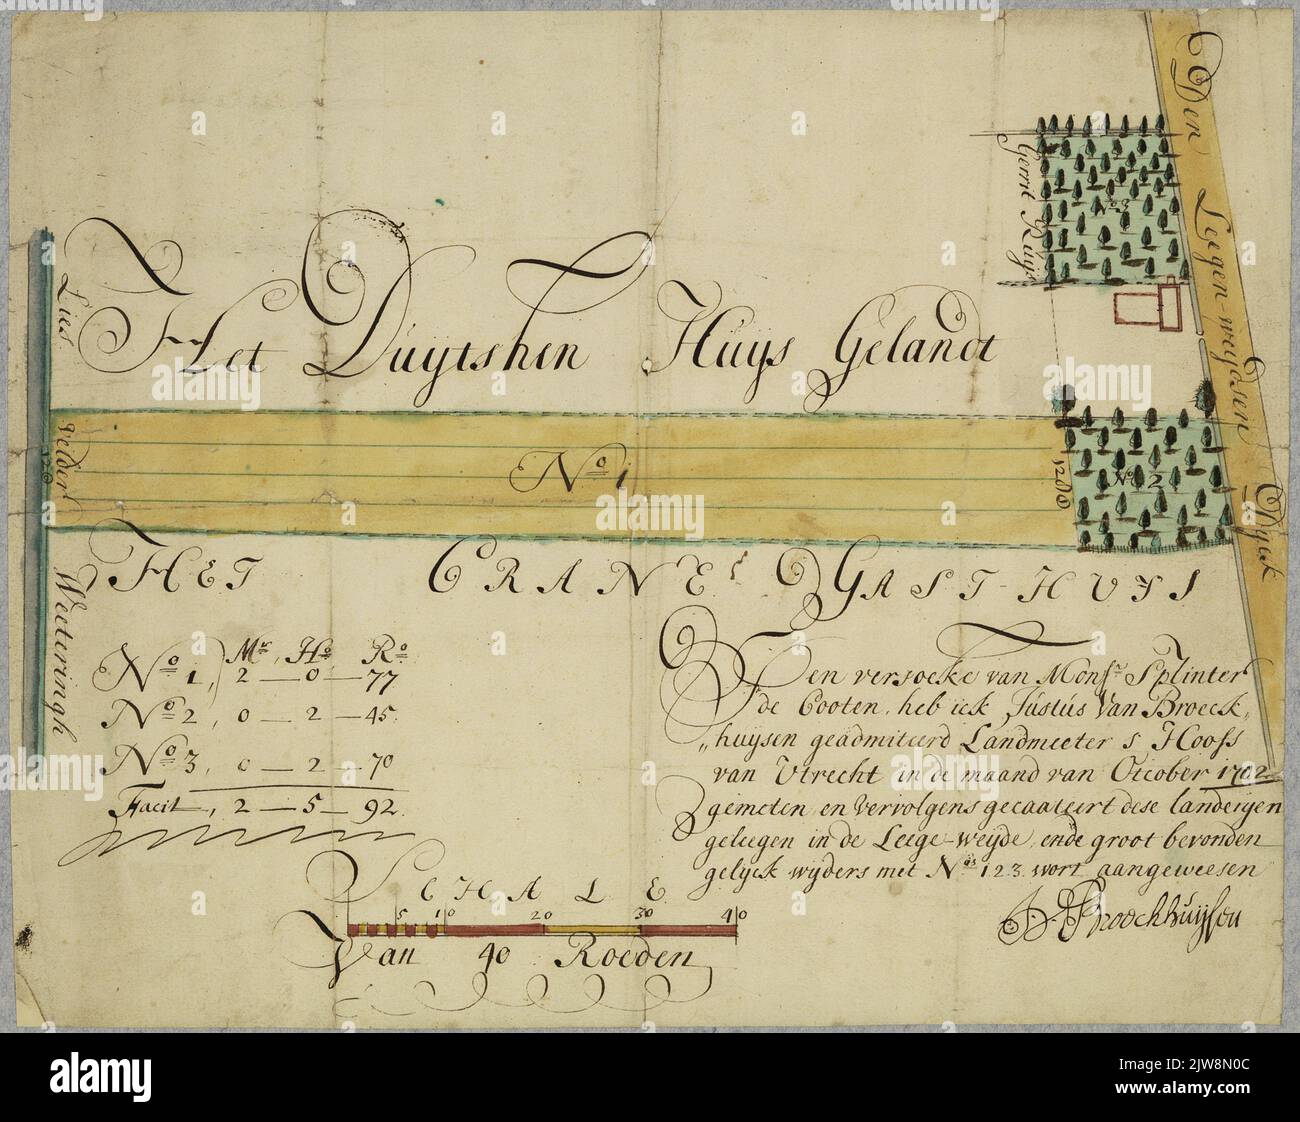 Den Leegen-weydsen Dyck
Gerrit Ruys
No 3
Lies
velder
Weeteringh
Het Duytshen Huys Gelandt
No 1
No 2
HET CRANEs GASTHUYS
Mn, Ho, Ro
No 1, 2 — 0 — 77
No 2, 0 — 2 — 45
No 3, 0 — 2 — 70
Facit, 2 — 5 — 92
Ten versoeke van Monsr Splinter
de Cooten, heb ick Justus Van Broeck„
„huysen geadmiteerd Landmeeter s Hoofs
van Utrecht in de maand van October 1702
gemeten en vervolgens gecaateert dese landerijen
geleegen in de Leege-weyde, ende groot bevonden
gelyck wyders met Nos 1 2 3 wort aangeweesen
J. V. Broeckhuysen
SCHALE
5 10 20 30 40
Van 40 Roeden
alamy
Image ID: 2JW8N0C
www.alamy.com